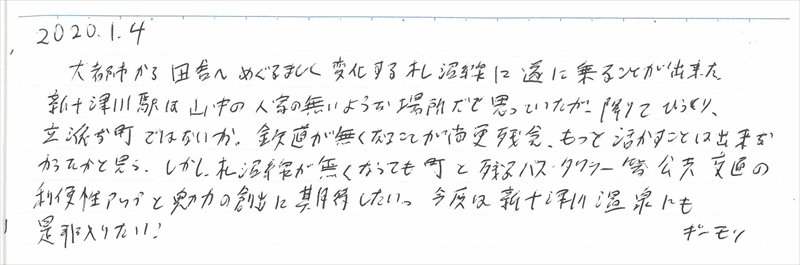 2020.1.4
大都市から田舎へめぐるましく変化する札沼線に遂に乗ることが出来た
新十津川駅は山中の人家の無いような場所だと思っていたが、降りてびっくり、
立派な町ではないか。鉄道が無くなることが尚更残念、もっと活かすことは出来な
かったかと思う。しかし、札沼線が無くなっても町と残るバス・タクシー等公共交通の
利便性アップと魅力の創出に期待したいっ 今度は新十津川温泉にも
是非入りたい!
ギーモン